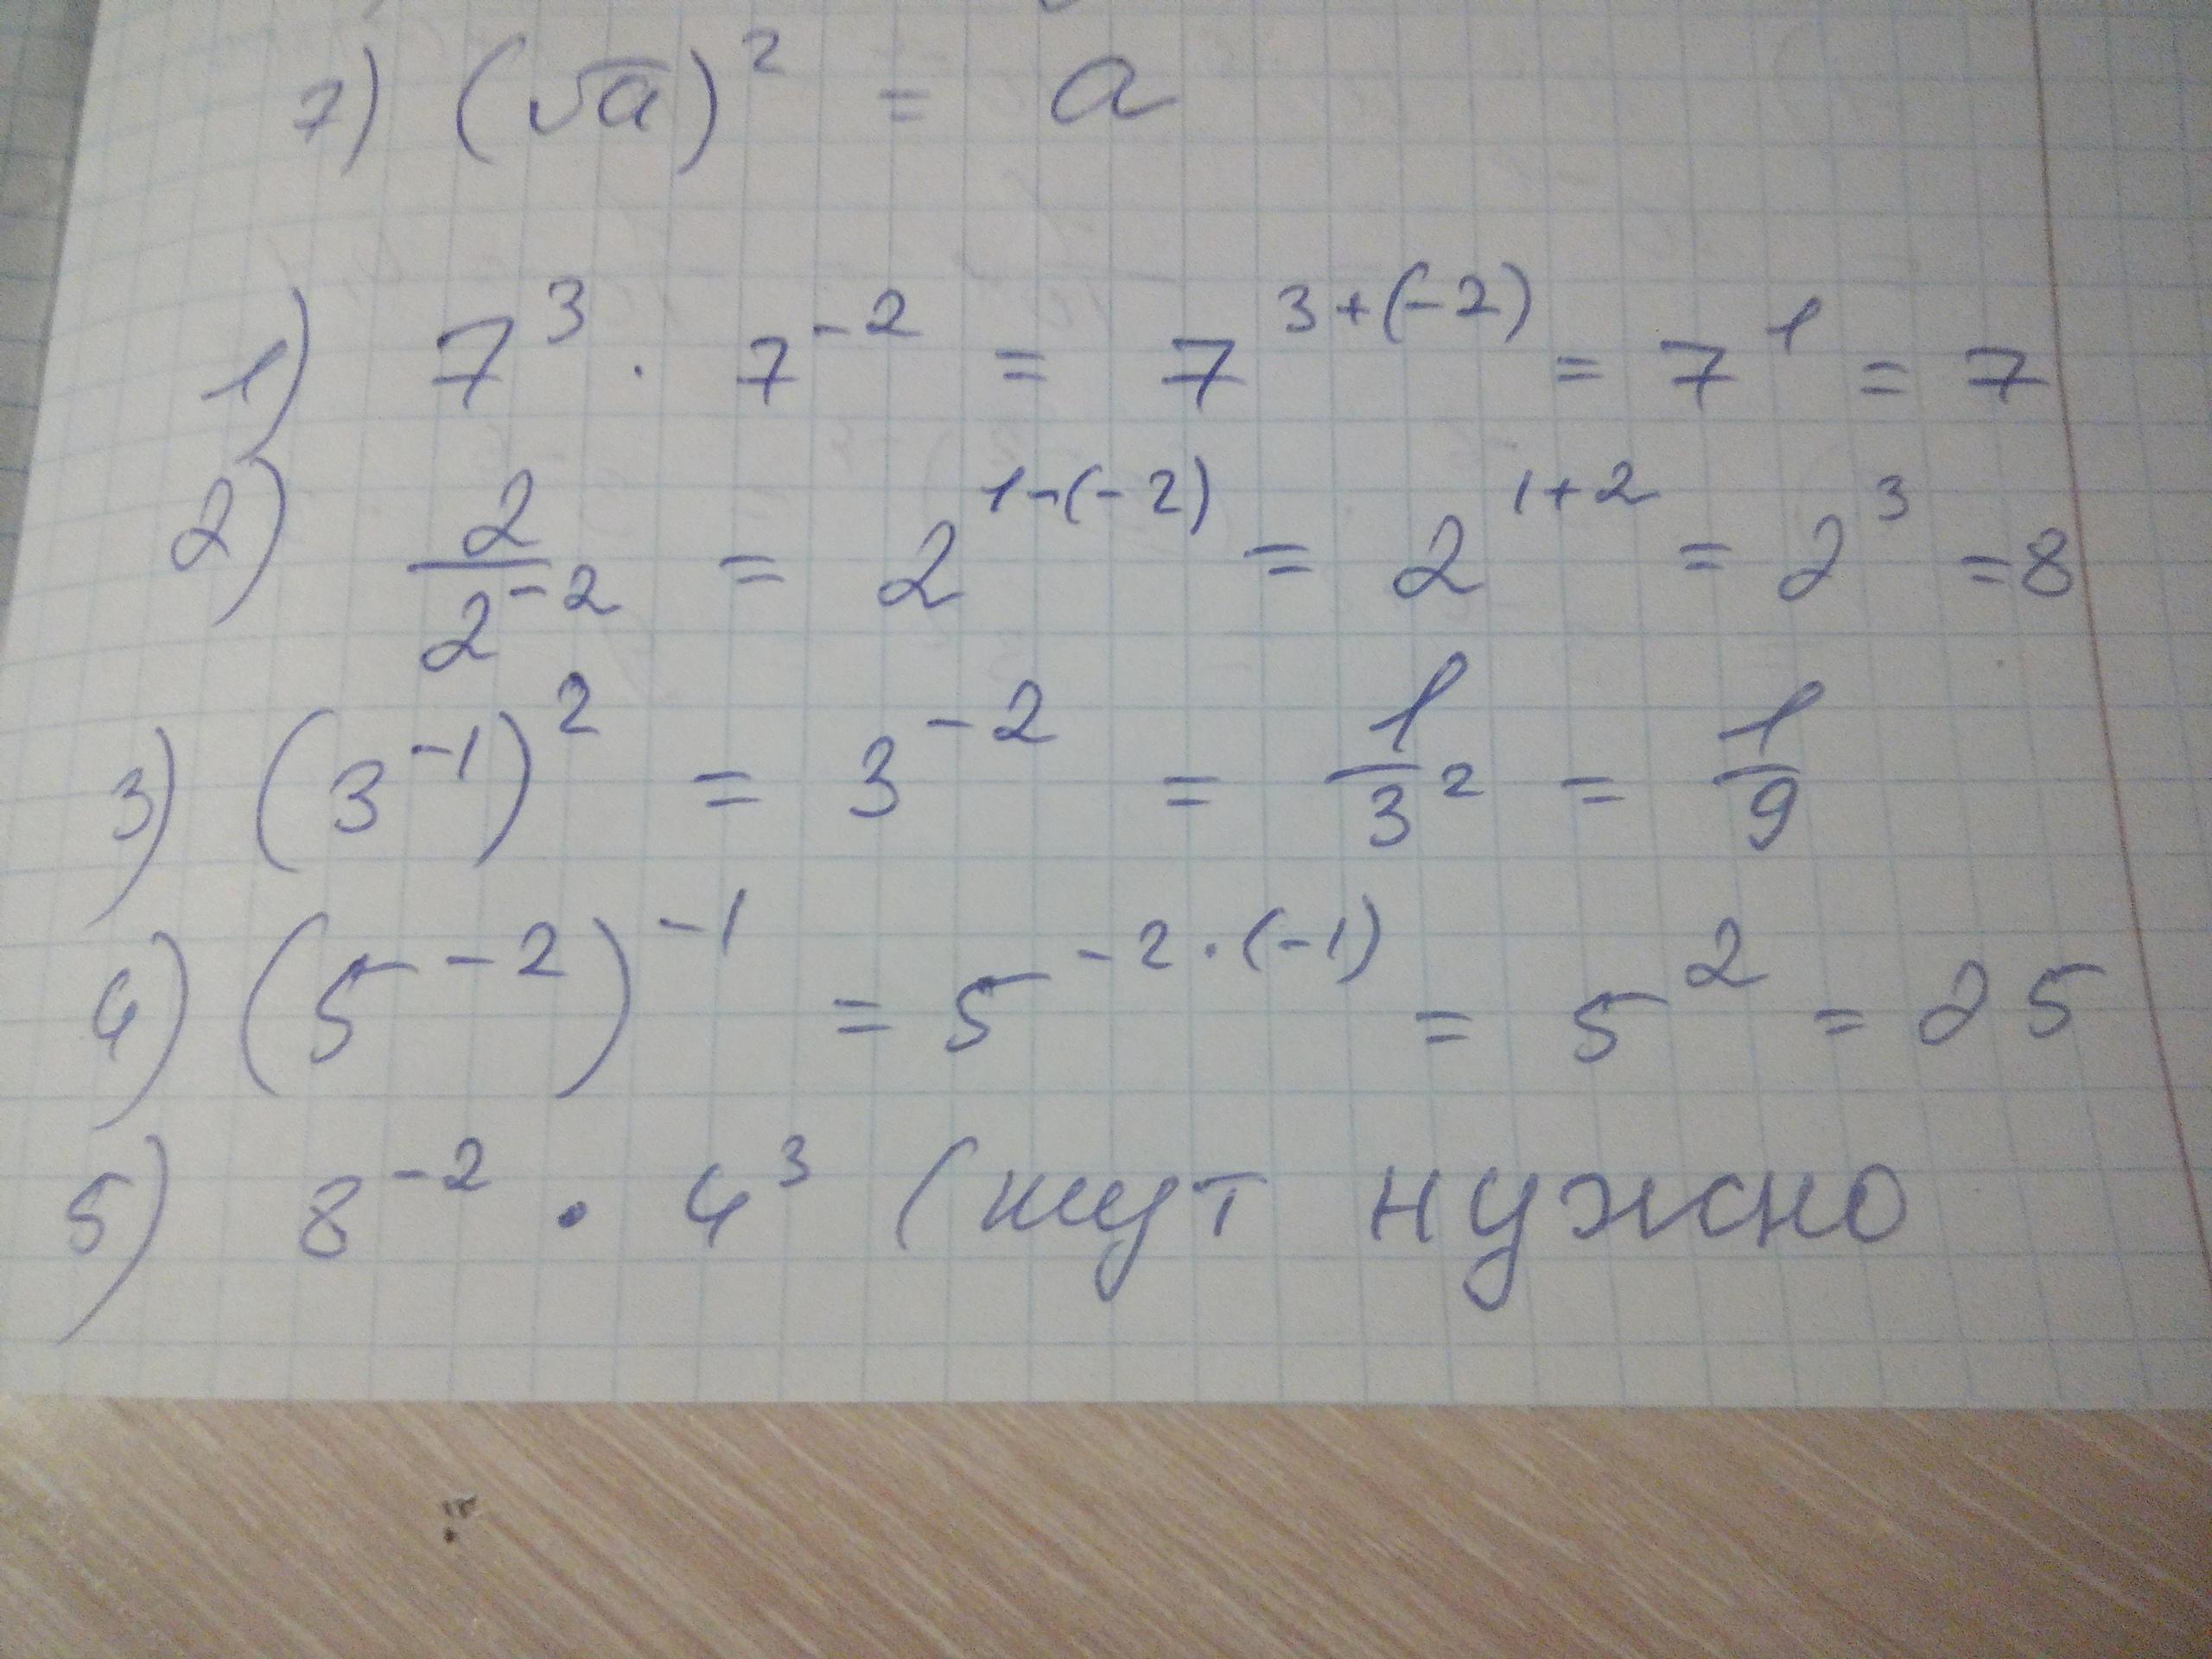 7) (√a)² = a
1) 7³ · 7⁻² = 7³⁺⁽⁻²⁾ = 7¹ = 7
2) 2/2⁻² = 2¹⁻⁽⁻²⁾ = 2¹⁺² = 2³ = 8
3) (3⁻¹)² = 3⁻² = 1/3² = 1/9
4) (5⁻²)⁻¹ = 5^(-2·(-1)) = 5² = 25
5) 8⁻² · 4³ (тут нужно